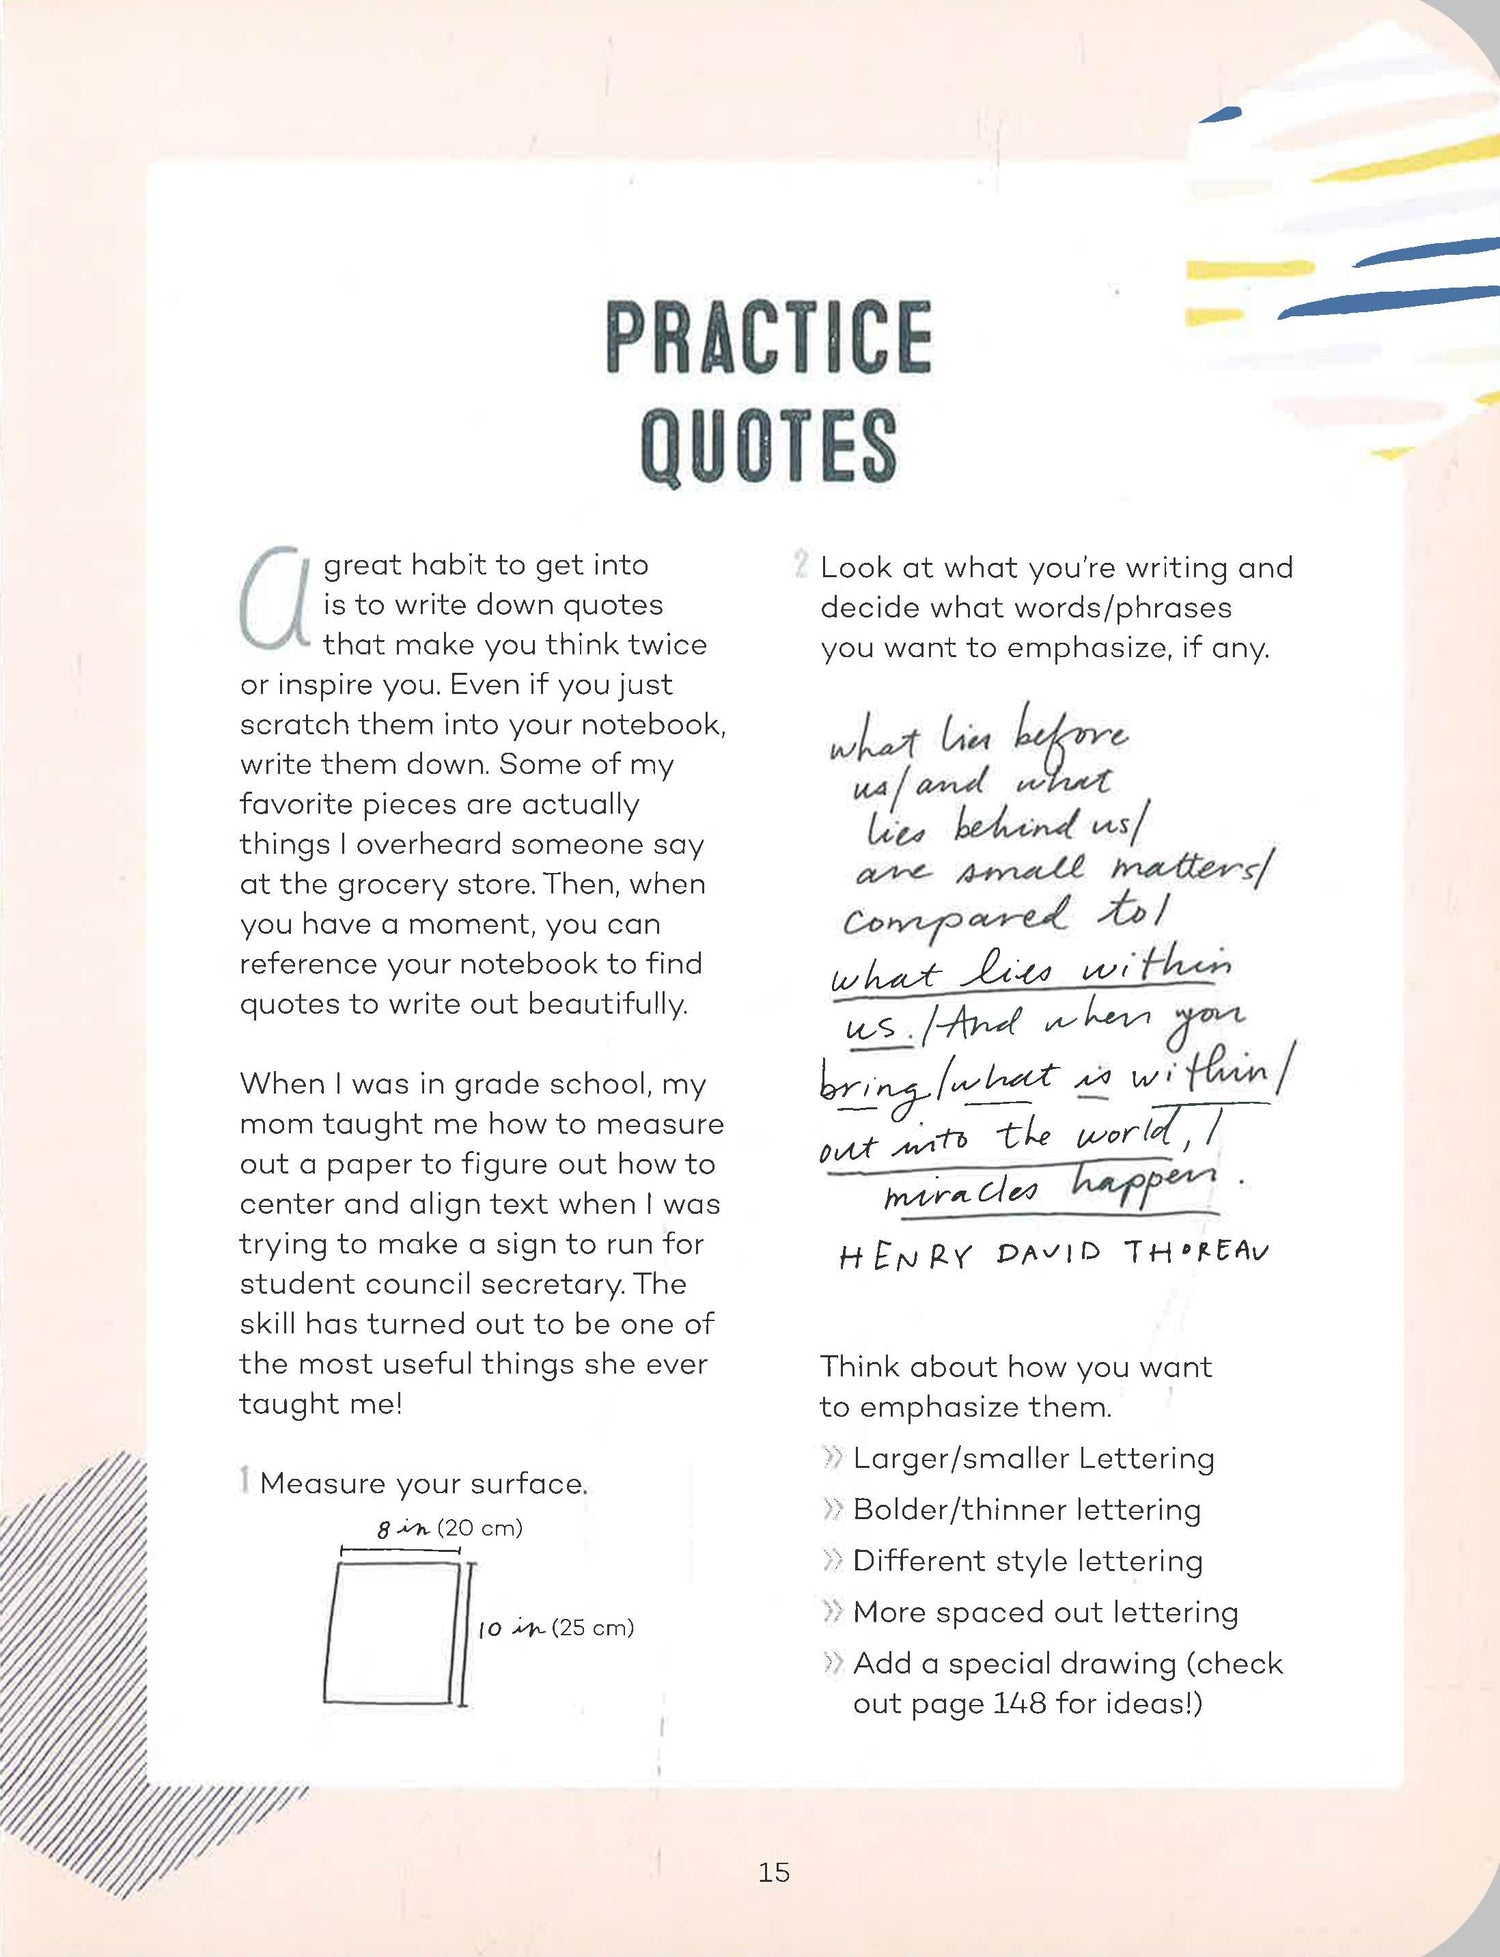 PRACTICE
QUOTES
a great habit to get into
is to write down quotes
that make you think twice
or inspire you. Even if you just
scratch them into your notebook,
write them down. Some of my
favorite pieces are actually
things I overheard someone say
at the grocery store. Then, when
you have a moment, you can
reference your notebook to find
quotes to write out beautifully.
When I was in grade school, my
mom taught me how to measure
out a paper to figure out how to
center and align text when I was
trying to make a sign to run for
student council secretary. The
skill has turned out to be one of
the most useful things she ever
taught me!
1 Measure your surface.
8 in (20 cm)
10 in (25 cm)
2 Look at what you're writing and
decide what words/phrases
you want to emphasize, if any.
what lies before
us/and what
lies behind us/
are small matters/
compared to/
what lies within
us./And when you
bring/what is within/
out into the world,/
miracles happen.
HENRY DAVID THOREAU
Think about how you want
to emphasize them.
» Larger/smaller Lettering
» Bolder/thinner lettering
» Different style lettering
» More spaced out lettering
» Add a special drawing (check
out page 148 for ideas!)
15